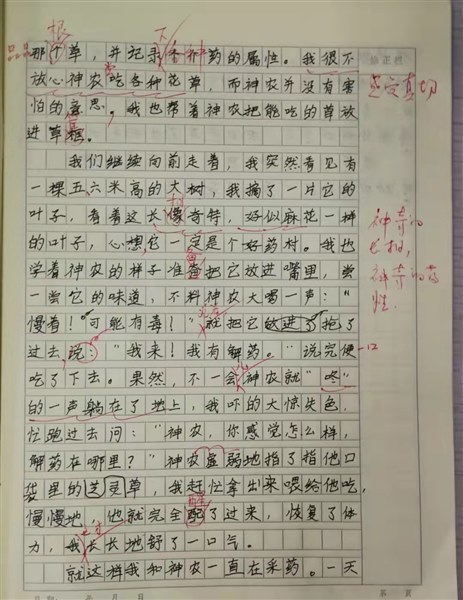 品品那个草，并记录各种药的属性。我很不
放心神农吃各种花草，而神农并没有害
怕的意思。我也帮着神农把能吃的草放
进草框。
我们继续向前走着，我突然看见有
一棵五六米高的大树，我摘了一片它的
叶子，看着这长像奇特，好似麻花一样
的叶子，心想它一定是个好药材。我也
学着神农的样子准备把它放进嘴里，尝
一尝它的味道，不料神农大喝一声："
慢着！可能有毒！"就把它放进了抢了
过去，说："我来！我有解药。"说完便一口
吃了下去。果然，不一会神农就"咚"
的一声躺在了地上，我吓的大惊失色，
忙跑过去问："神农，你感觉怎么样，
解药在哪里？"神农虚弱地指了指他口
袋里的芝灵草，我赶忙拿出来喂给他吃，
慢慢地，他就完全醒了过来，恢复了体
力，我长长地舒了一口气。
就这样我和神农一直在采药。一天
感受真切
神奇的
神奇的药
性